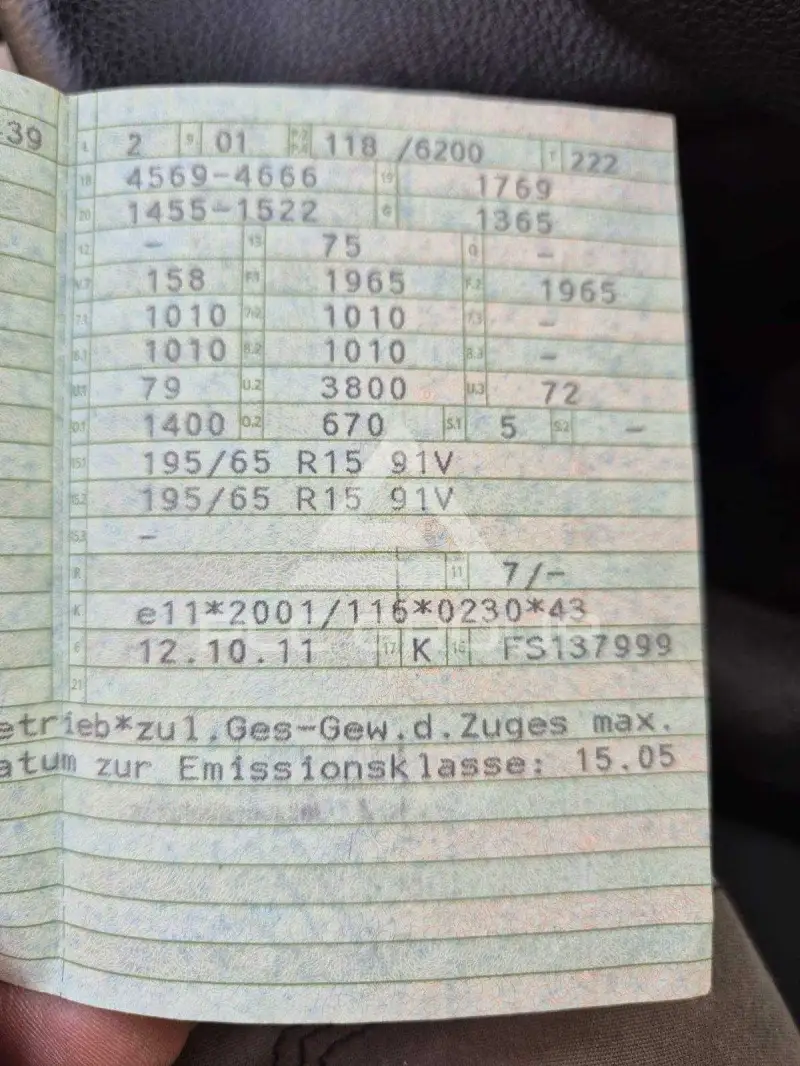 39 L 2 9 01 P.2 P.4 118 /6200 T 222
18 4569-4666 19 1769
20 1455-1522 G 1365
12 - 13 75 Q -
V.7 158 F.1 1965 F.2 1965
7.1 1010 7.2 1010 7.3 -
8.1 1010 8.2 1010 8.3 -
U.1 79 U.2 3800 U.3 72
O.1 1400 O.2 670 S.1 5 S.2 -
15.1 195/65 R15 91V
15.2 195/65 R15 91V
15.3 -
R 11 7/-
K e11*2001/116*0230*43
6 12.10.11 17 K 16 FS137999
21
etrieb*zul.Ges-Gew.d.Zuges max.
atum zur Emissionsklasse: 15.05